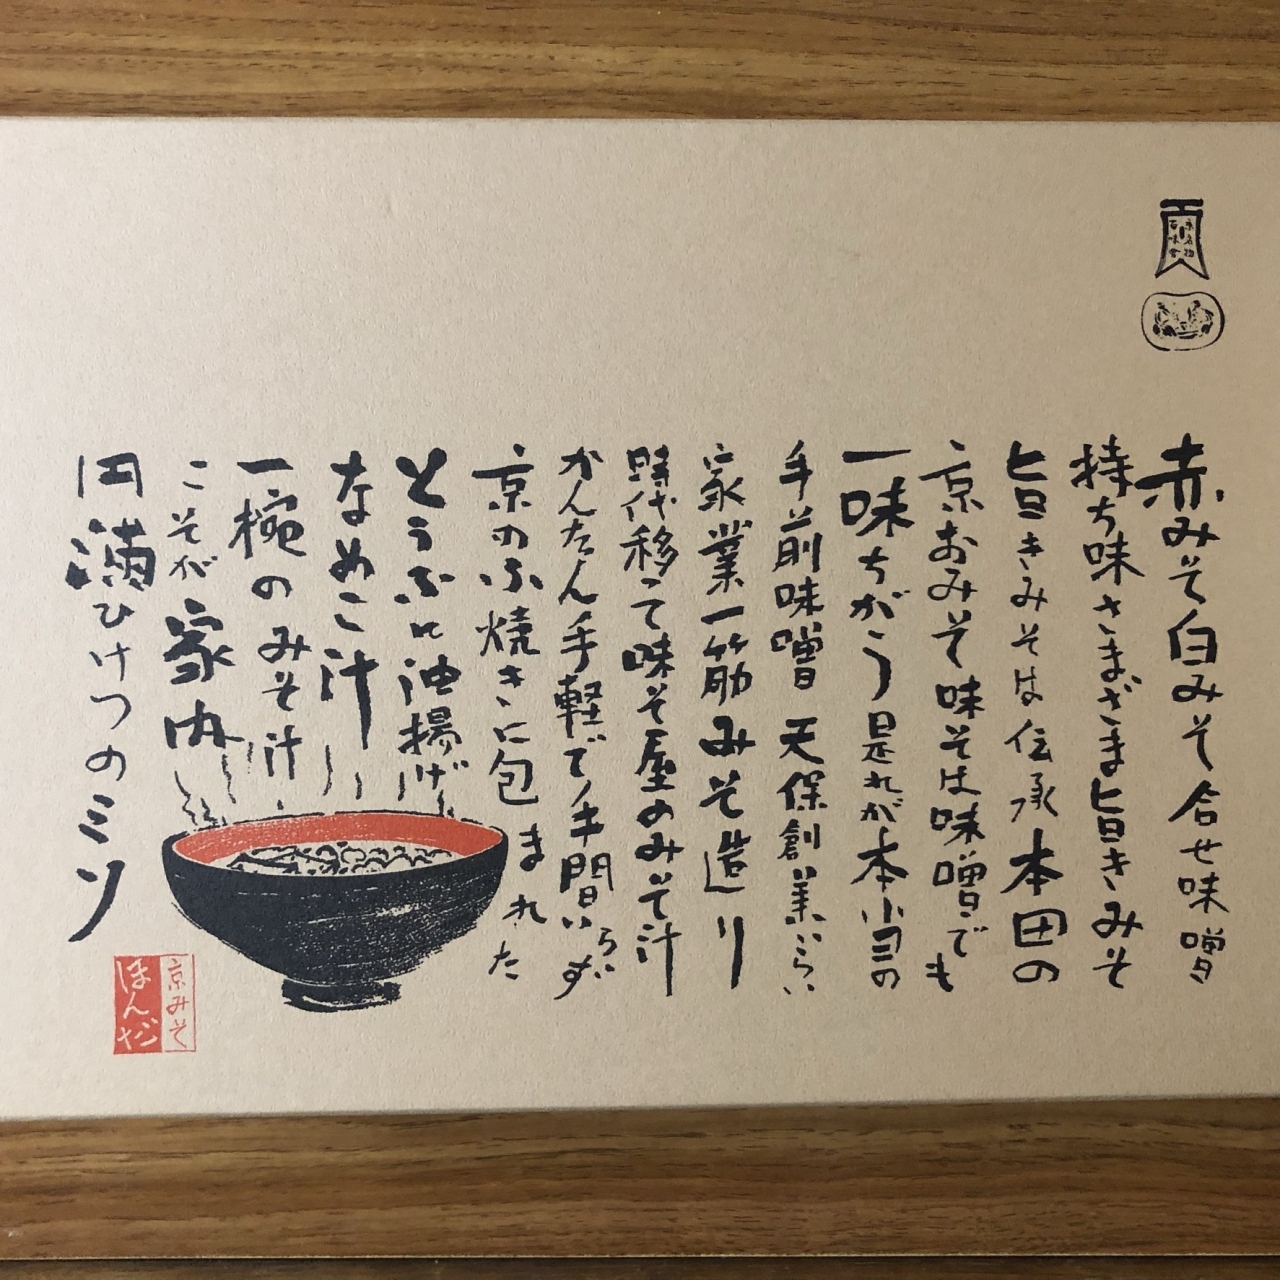 赤みそ白みそ合せ味噌
持ち味さまざま旨きみそ
旨きみそは伝承本田の
京おみそ味そは味噌でも
一味ちがう是れが本田の
手前味噌天保創業いらい
家業一筋みそ造り
時代移って味そ屋のみそ汁
かんたん手軽で手間いらず
京のふ焼きに包まれた
とうふに油揚げ
なめこ汁
一椀のみそ汁
こそが家内
円満ひけつのミソ
京みそ
ほんだ